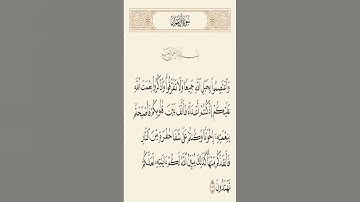 سورة آل عمران
بسم الله الرحمن الرحيم
وَاعْتَصِمُوا بِحَبْلِ اللَّهِ جَمِيعًا وَلَا تَفَرَّقُوا وَاذْكُرُوا نِعْمَتَ اللَّهِ
عَلَيْكُمْ إِذْ كُنْتُمْ أَعْدَاءً فَأَلَّفَ بَيْنَ قُلُوبِكُمْ فَأَصْبَحْتُمْ
بِنِعْمَتِهِ إِخْوَانًا وَكُنْتُمْ عَلَى شَفَا حُفْرَةٍ مِنَ النَّارِ
فَأَنْقَذَكُمْ مِنْهَا كَذَلِكَ يُبَيِّنُ اللَّهُ لَكُمْ آيَاتِهِ لَعَلَّكُمْ
تَهْتَدُونَ